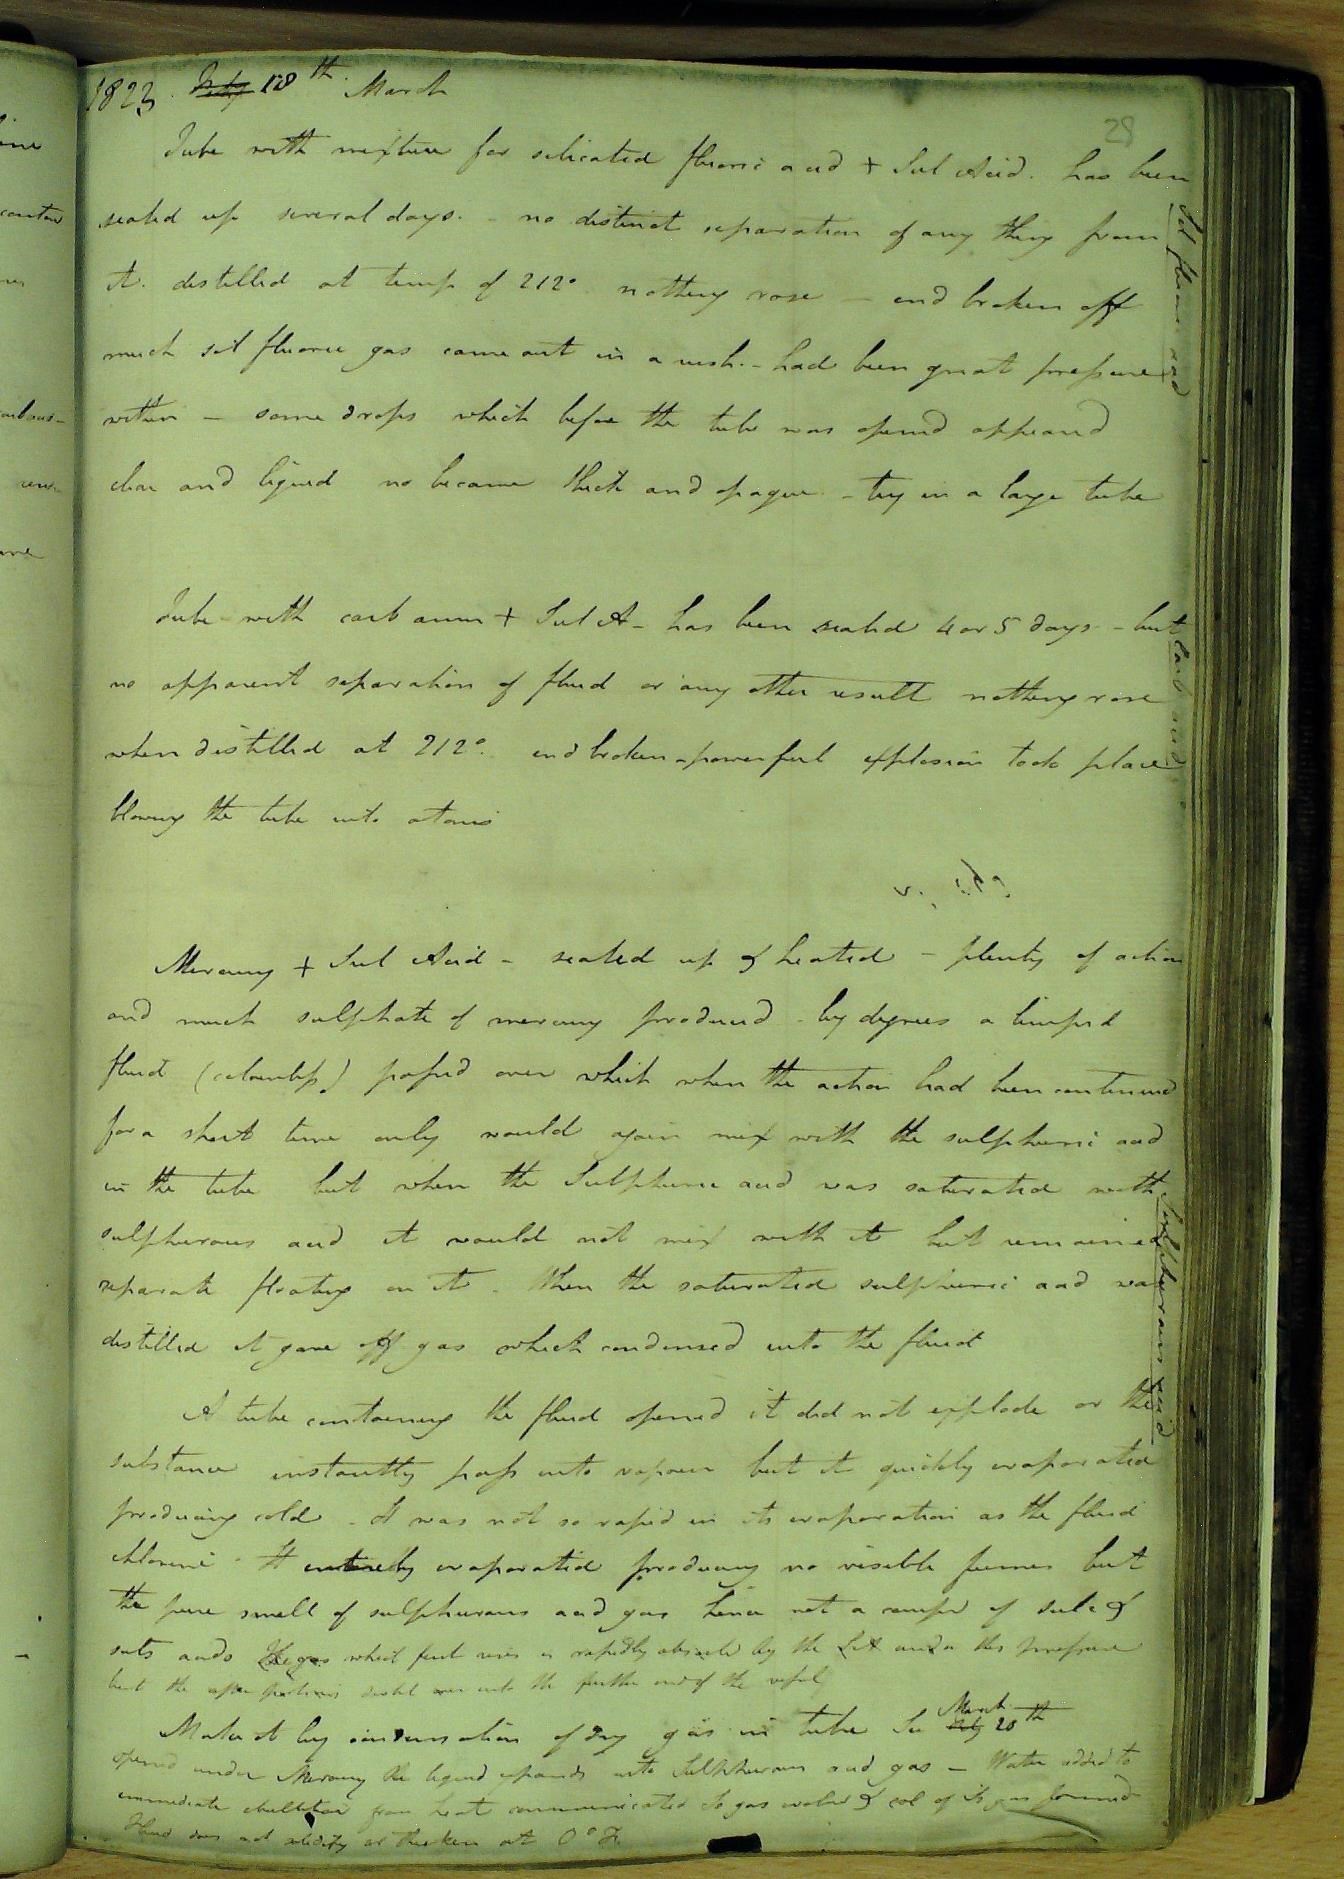 1823. July 18th. March
28
Tube with mixture for silicated fluoric acid + Sul Acid. has been
sealed up several days. - no distinct separation of any thing from
it. distilled at temp of 212° nothing rose - end broken off
much sil fluoric gas came out in a rush. - had been great pressure
within - some drops which before the tube was opened appeared
clear and liquid no became thick and opaque - try in a large tube
Sil fluoric acid
Tube with carb amm + Sul A - has been sealed 4 or 5 days - but
no apparent separation of fluid or any other result nothing rose
when distilled at 212°. end broken - powerful explosion took place
blowing the tube into atoms
Carb acid
Mercury + Sul Acid - sealed up & heated - plenty of action
and much sulphate of mercury produced - by degrees a limpid
fluid (colourless) passed over which when the action had been continued
for a short time only would again mix with the sulphuric acid
in the tube but when the Sulphuric acid was saturated with
sulphurous acid it would not mix with it but remained
separate floating on it. When the saturated sulphuric acid was
distilled it gave off gas which condensed into the fluid
Sulphurous acid
A tube containing the fluid opened it did not explode or the
substance instantly pass into vapour but it quickly evaporated
producing cold. It was not so rapid in its evaporation as the fluid
chlorine. It entirely evaporated producing no visible fumes but
the pure smell of sulphurous acid gas hence not a compd of sulc &
suls acids The gas which first rises is rapidly absorbed by the S A under this pressure
but the after portions distil over into the further end of the vessel
Make it by condensation of dry gas in tube See July March 20th
opened under Mercury the liquid expands into Sulphurous acid gas - Water added to
immediate ebullition from heat communicated so gas evolved & sol of its gas formed
Fluid does not solidify or thicken at 0° F.